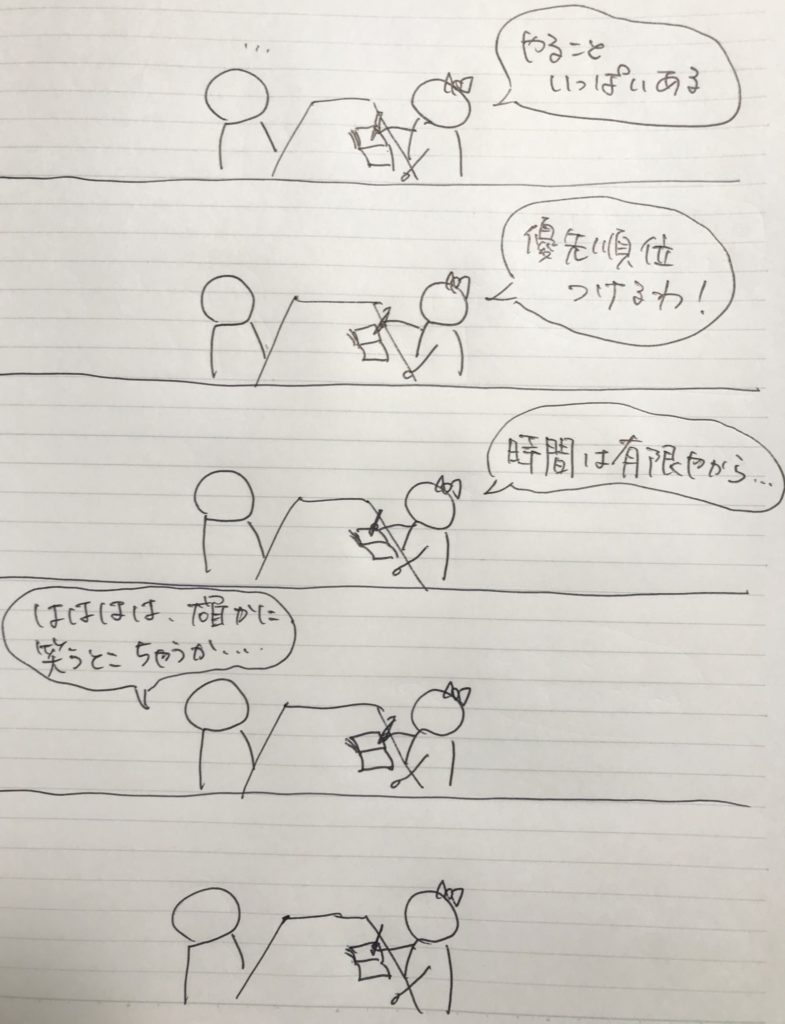 ...
やること
いっぱいある
優先順位
つけるわ!
時間は有限やから...
はははは、確かに
笑うとこちゃうか.....